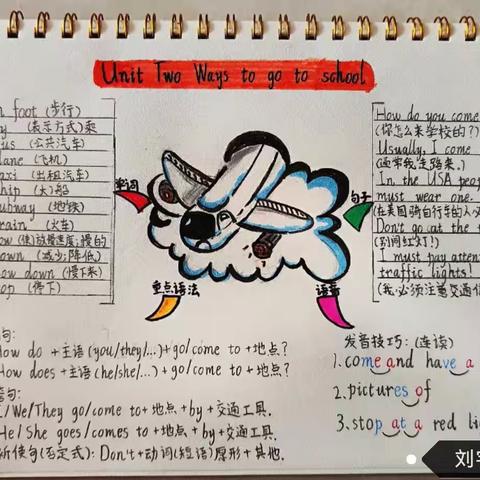 Unit Two Ways to go to school
foot (步行)
(表示方式)乘
(公共汽车)
(飞机)
(出租汽车)
(大)船
(地铁)
(火车)
(使)放慢速度;慢的
(减少;降低)
down (慢下来)
(停下)
单词
句子
重点语法
语音
How do you come
(你怎么来学校的?)
Usually, I come
(通常我走路来.)
In the USA peop
must wear one.
(在美国骑自行车的人必
Don't go at the
(别闯红灯!)
I must pay atten
traffic lights!
(我必须注意交通信
句:
How do +主语(you/they/...)+go/come to +地点?
How does +主语(he/she/...)+go/come to +地点?
答句:
I/We/They go/come to+地点+by+交通工具.
He/She goes/comes to +地点+by+交通工具.
祈使句(否定式): Don't+动词(短语)原形+其他.
发音技巧:(连读)
1.come and have a
2.pictures of
3.stop at a red li